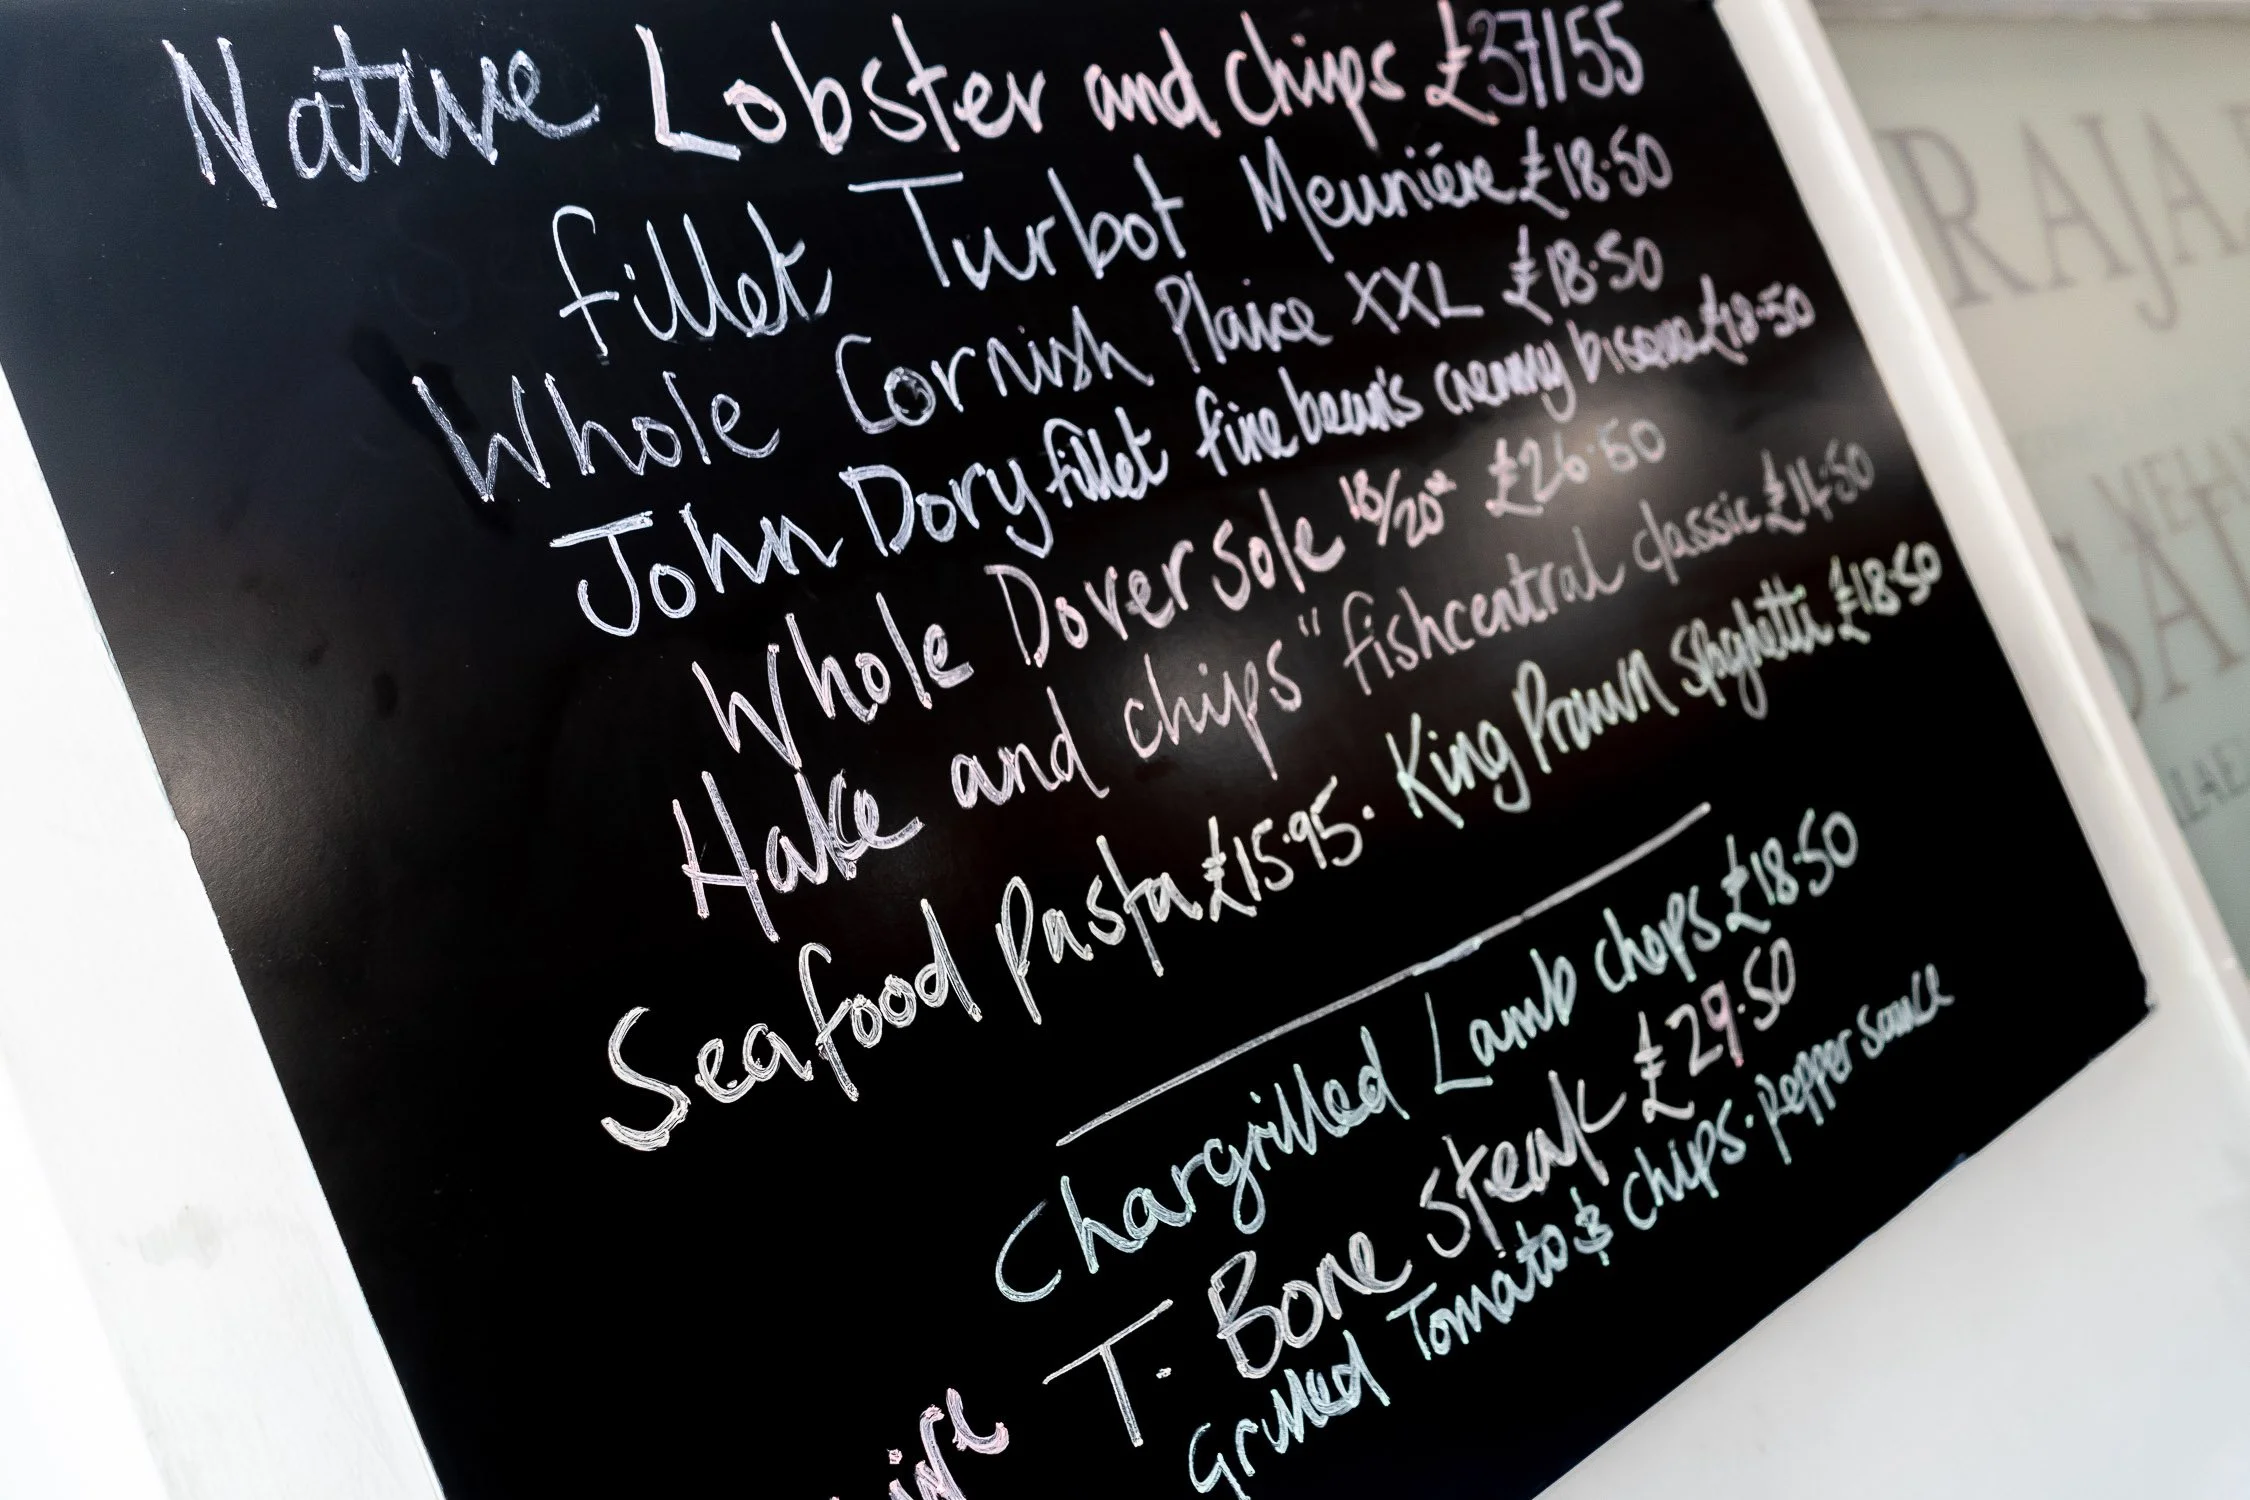 Native Lobster and chips £37/55
fillet Turbot Meuniére £18.50
Whole Cornish Plaice XXL £18.50
John Dory fillet fine bean's creamy bisque £18.50
Whole Dover Sole 18/20oz £26.50
Hake and chips "fishcentral classic £14.50
Seafood Pasta £15.95. King Prawn Spaghetti £18.50
Chargrilled Lamb chops £18.50
T. Bone Steak £29.50
Grilled Tomato & chips. pepper sauce
RAJA